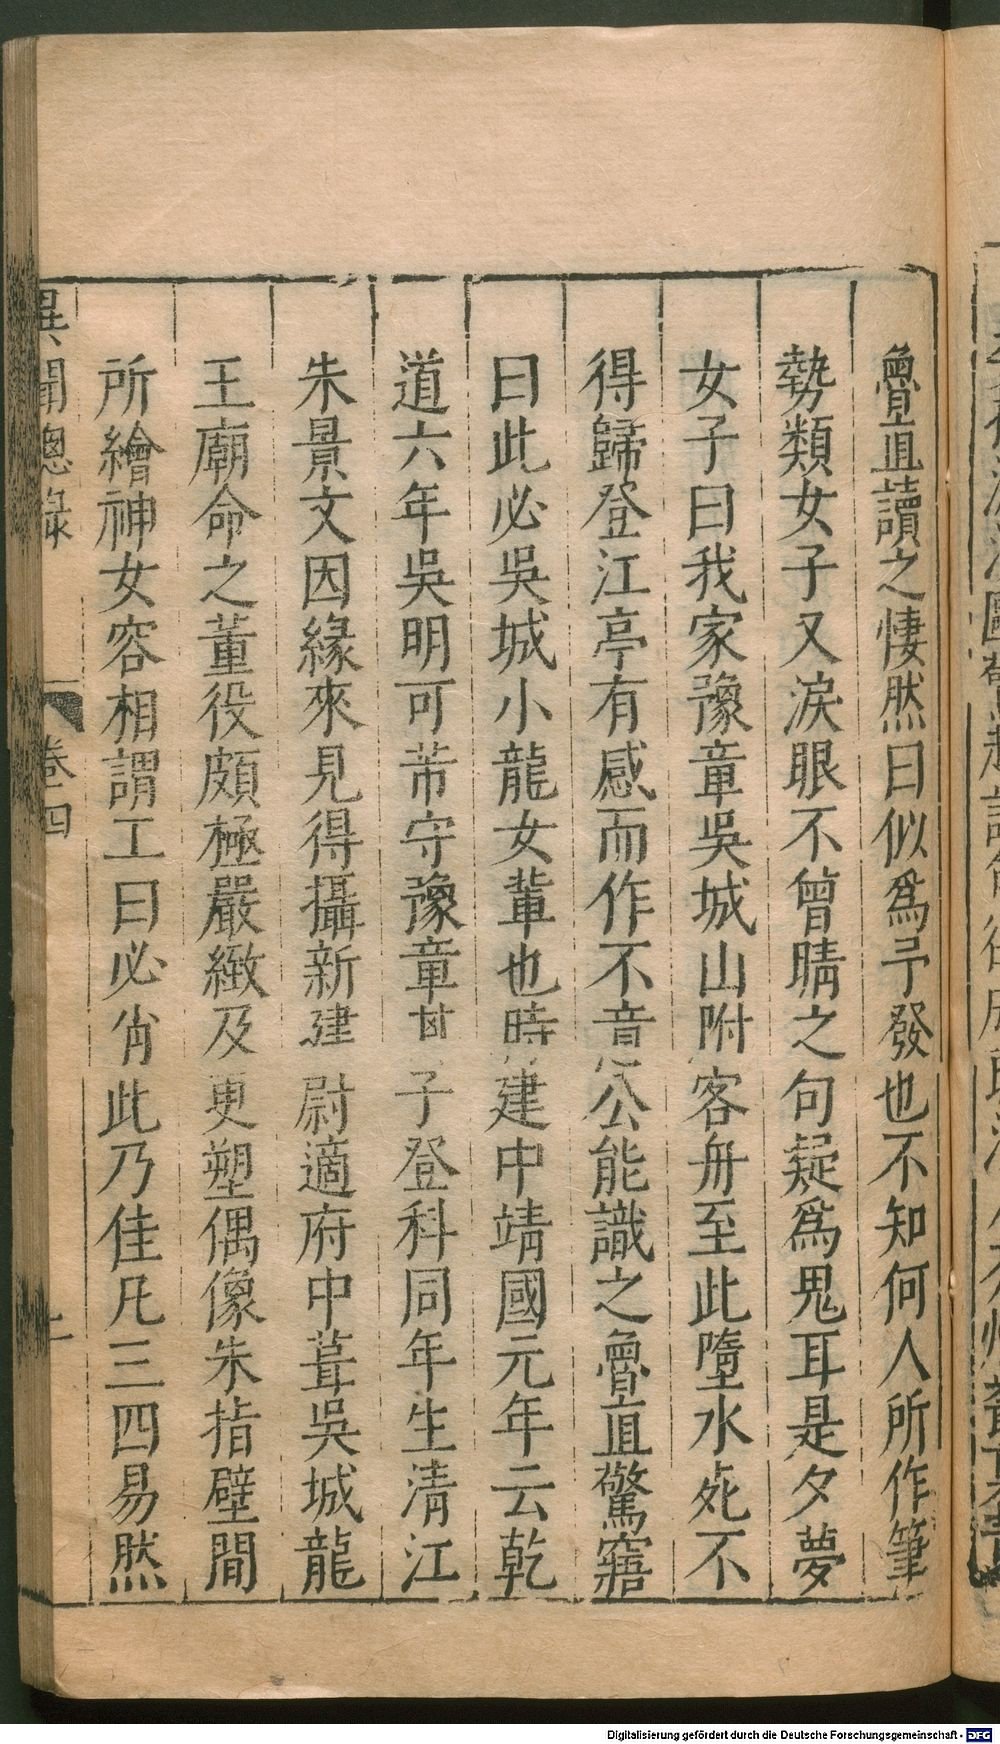 魯直讀之悽然曰似爲予發也不知何人所作筆
勢類女子又淚眼不曾晴之句疑爲鬼耳是夕夢
女子曰我家豫章吳城山附客舟至此墮水死不
得歸登江亭有感而作不意公能識之魯直驚寤
曰此必吳城小龍女輩也時建中靖國元年云乾
道六年吳明可芾守豫章其子登科同年生清江
朱景文因緣來見得攝新建尉適府中葺吳城龍
王廟命之董役頗極嚴緻及更塑偶像朱指壁間
所繪神女容相謂工曰必肖此乃佳凡三四易然
異聞總錄
卷四
Digitalisierung gefördert durch die Deutsche Forschungsgemeinschaft - DFG